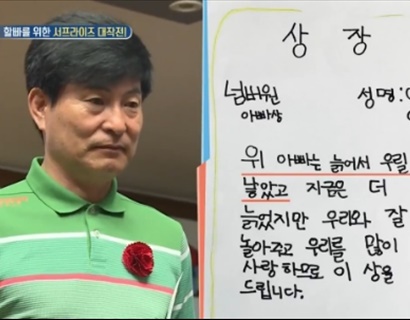 할빠를 위한 서프라이즈 대작전!
상 장
넘버원
아빠상
성명:
위 아빠는 늙어서 우릴
낳았고 지금은 더
늙었지만 우리와 잘
놀아주고 우리를 많이
사랑하므로 이 상을
드립니다.